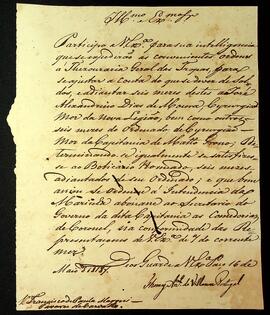 Illmo. Exmo. Snr.
Participo a V. Exa. para sua intelligencia
que se expedirão as convenientes Ordens
á Thezouraria Geral das para
se ajustar a conta do que deve de Sol-
dos, e adiantar seis mezes destes ao
Alexandrino Dias de Moura, Cyrurgião
Mor da Nova Legião, bem como outros
seis mezes de Ordenado de Cyrurgião
Mor da Capitania de Matto Grosso; De-
terminando-se igualmente se satisfizes-
se ao Boticario seis mezes,
adiantados do seu Ordenado; e que tam-
bem se Ordena á Intendencia da
Marinha abonar ao Secretario do
Governo da dita Capitania as Comedorias
de Coronel, na conformidade das Re-
prezentaçoens de V. Exa. de 7 do corrente
mez.
Deos Guarde a V. Exa. Paço 16 de
Maio de 1807.
Thomaz Anto. de Villanova Portugal
Snr. Francisco de Paula Magessi
Tavares de Carvalho